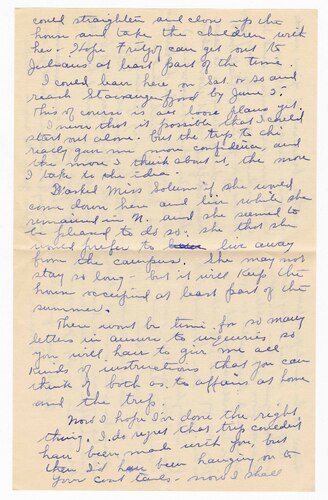 could straighten and close up the
house and take the children with
her. Hope Fritzof can get out to
Julians at least part of the time.
I could leave here on Sat. or so and
reach Stavangerfjord by June 5.
This of course is all loose plans yet.
I never that is possible that I could
start out alone. but the trip to Chi
really gave me more confidence, and
the more I think about it, the more
I take to the idea.
I asked Miss Solem if she would
come down here and live while she
remained in N. and she seemed to
be pleased to do so; she that she
would prefer to live away
from the campus. She may not
stay so long - but it will keep the
house occupied at least part of the
summer.
There wont be time for so many
letters in answer to inquiries so
you will have to give me all
kinds of instructions that you can
think of both as to affairs at home
and the trip.
Now I hope I'm done the right
thing. I do regret that trip couldn't
have been made with you, but
then I'd have been hanging on to
your coat tails - now I shall